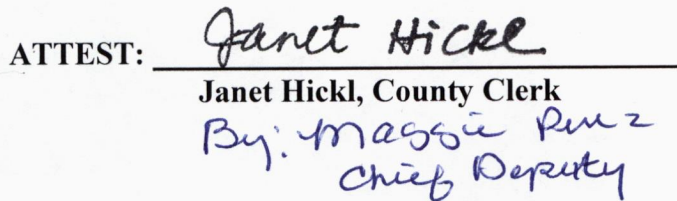 ATTEST: Janet Hickl
Janet Hickl, County Clerk
By: Maggie Perez
Chief Deputy